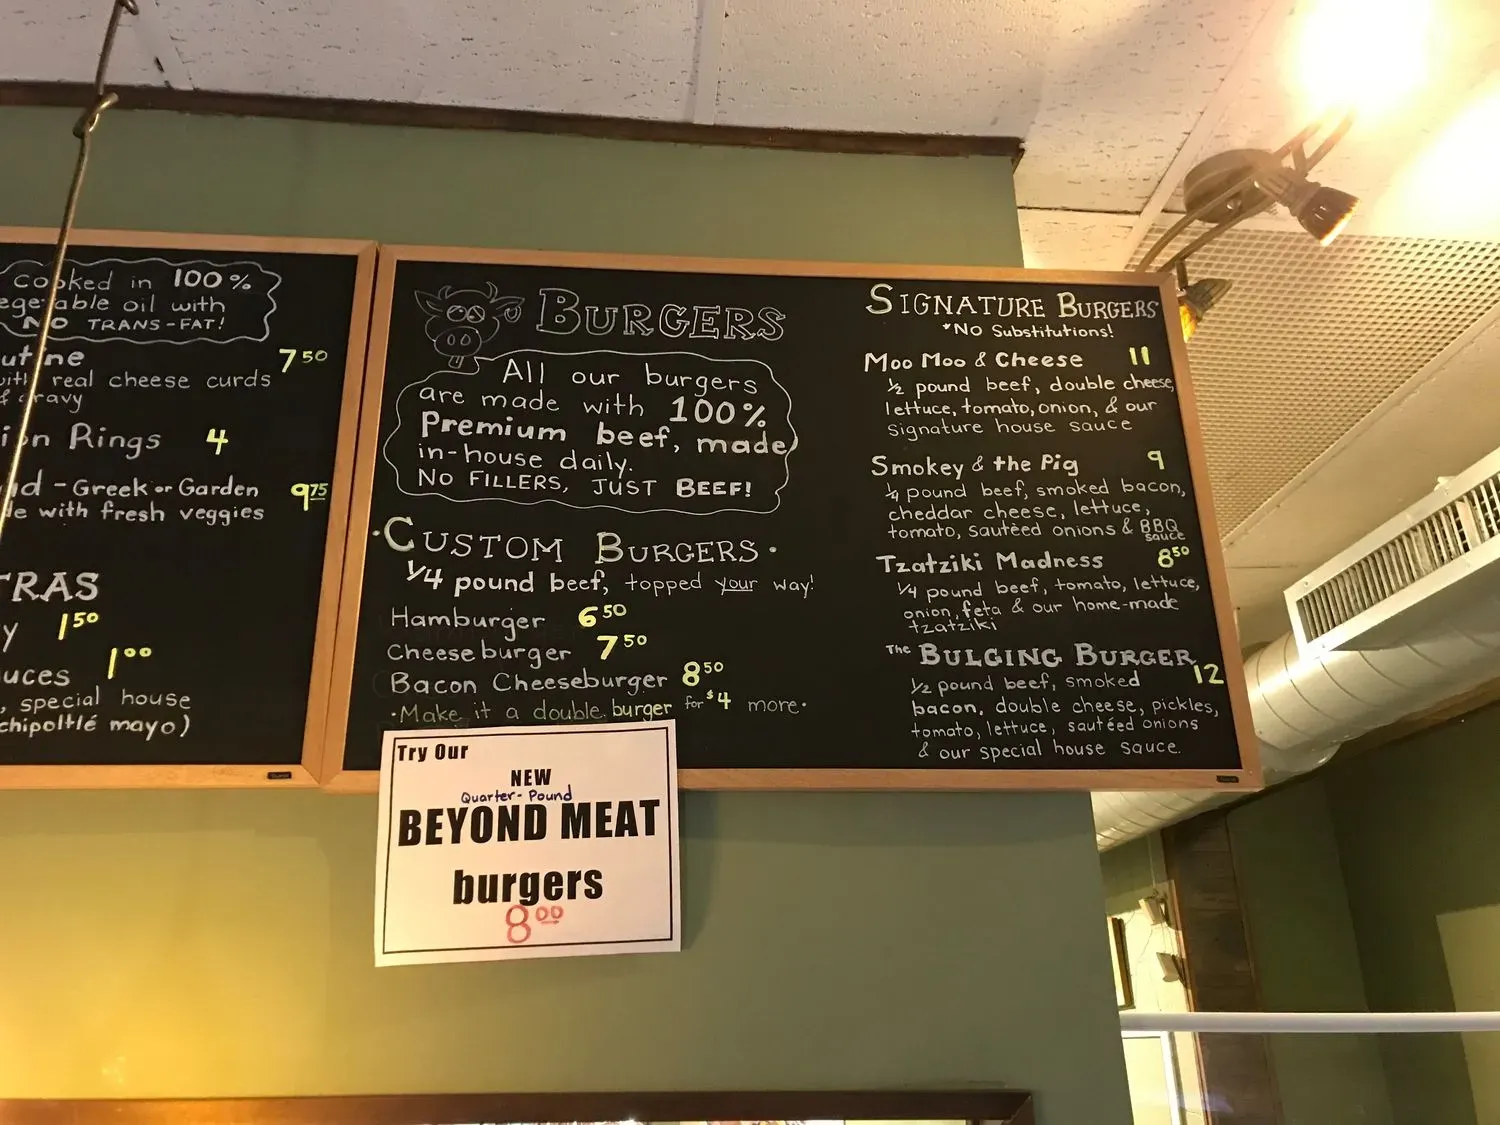 cooked in 100%
oil with
NO TRANS-FAT!
7 50
real cheese curds
Rings 4
Greek or Garden 9 75
with fresh veggies
1 50
1 00
, special house
chipoltlé mayo)
BURGERS
All our burgers
are made with 100%
Premium beef, made
in-house daily.
NO FILLERS, JUST BEEF!
·CUSTOM BURGERS·
1/4 pound beef, topped your way!
Hamburger 6 50
Cheeseburger 7 50
Bacon Cheeseburger 8 50
·Make it a double burger for $4 more·
Try Our
NEW
Quarter-Pound
BEYOND MEAT
burgers
8 00
SIGNATURE BURGERS
*No Substitutions!
Moo Moo & Cheese 11
1/2 pound beef, double cheese,
lettuce, tomato, onion, & our
signature house sauce
Smokey & the Pig 9
1/4 pound beef, smoked bacon,
cheddar cheese, lettuce,
tomato, sautéed onions & BBQ
sauce
Tzatziki Madness 8 50
1/4 pound beef, tomato, lettuce,
onion, feta & our home-made
tzatziki
The BULGING BURGER 12
1/2 pound beef, smoked
bacon, double cheese, pickles,
tomato, lettuce, sautéed onions
& our special house sauce.